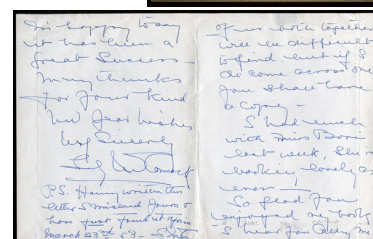 I'm happy to say
it has been a
Great Success –
Many thanks
for your kind
and good wishes
Yrs Sincerely
P.S. Having written this
letter I mislaid yours &
have just found it again
March 23rd 59 –
of us both together
will be difficult
to find but if I
do come across one
you shall have
a copy –
I had lunch
with Miss
last week, She is
looking lovely as
ever –
So glad you
enjoyed